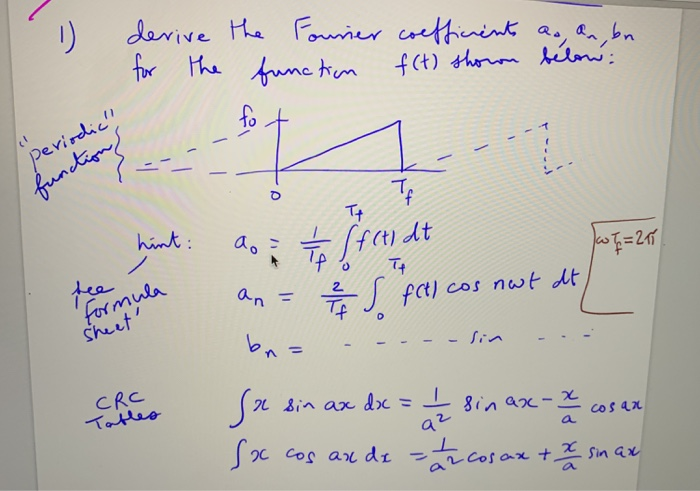 1) derive the Fourier coefficients a₀, aₙ, bₙ
for the function f(t) shown below:
"periodic"
function
f₀
0
T_f
hint: a₀ = 1/T_f ∫₀^{T_f} f(t) dt
ωT_f = 2π
see
'formula
sheet'
aₙ = 2/T_f ∫₀^{T_f} f(t) cos nωt dt
bₙ = - - - - - - sin - - -
CRC
Tables
∫ x sin ax dx = 1/a² sin ax - x/a cos ax
∫ x cos ax dx = 1/a² cos ax + x/a sin ax